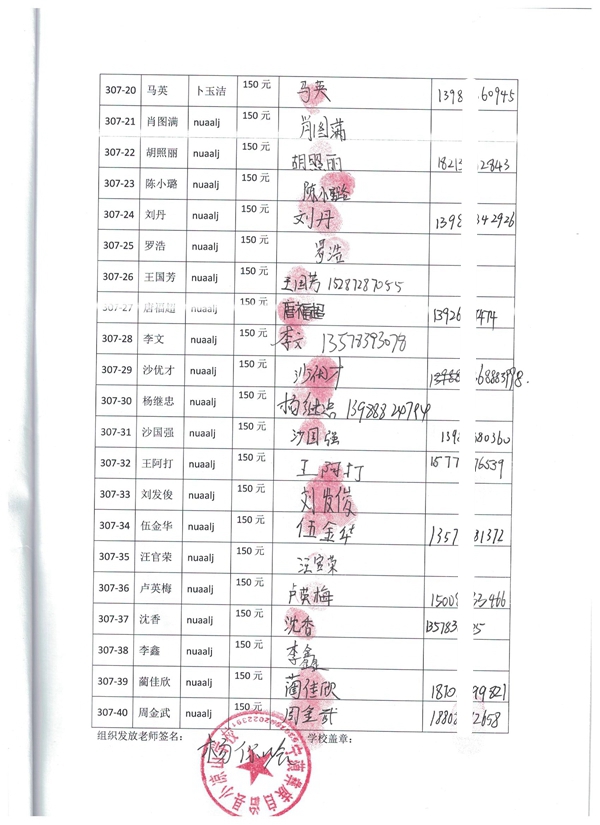 307-20 马英 卜玉洁 150 元 马英 1398 60945
307-21 肖图满 nuaalj 150 元 肖图满
307-22 胡照丽 nuaalj 150 元 胡照丽 18213 2843
307-23 陈小璐 nuaalj 150 元 陈小璐
307-24 刘丹 nuaalj 150 元 刘丹 1398 342926
307-25 罗浩 nuaalj 150 元 罗浩
307-26 王国芳 nuaalj 150 元 王国芳 15287287055
307-27 唐福超 nuaalj 150 元 唐福超 13926 7474
307-28 李文 nuaalj 150 元 李文 13578393078
307-29 沙优才 nuaalj 150 元
307-30 杨继忠 nuaalj 150 元 杨继忠 13988820794
307-31 沙国强 nuaalj 150 元 沙国强 139 80360
307-32 王阿打 nuaalj 150 元 王阿打 1577 76539
307-33 刘发俊 nuaalj 150 元 刘发俊
307-34 伍金华 nuaalj 150 元 伍金华 1357 81372
307-35 汪官荣 nuaalj 150 元 汪官荣
307-36 卢英梅 nuaalj 150 元 卢英梅 1500 33466
307-37 沈香 nuaalj 150 元 沈香 135783
307-38 李鑫 nuaalj 150 元 李鑫
307-39 蔺佳欣 nuaalj 150 元 蔺佳欣 1870 99821
307-40 周金武 nuaalj 150 元 周金武 18808 2658
组织发放老师签名： 学校盖章：